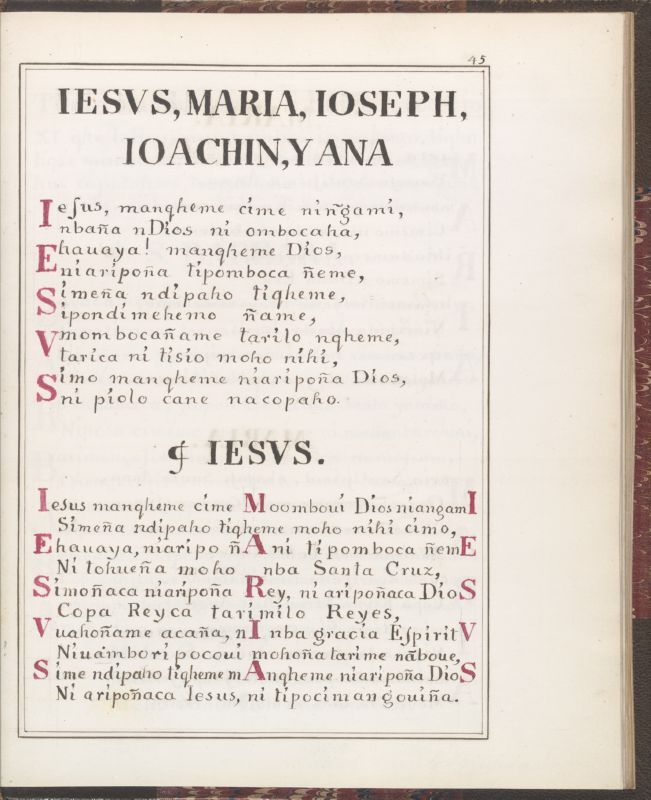 45
IESVS, MARIA, IOSEPH,
IOACHIN, Y ANA
Ieſus, manqheme cime nin̄gami,
nbaña nDios ni ombocaha,
Ehauaya! manqheme Dios,
niaripoña tipomboca ñeme,
Simeña ndipaho tiqheme,
Sipondimehemo ñame,
Vmombocañame tarilo nqheme,
tarica ni tisio moho nihi,
Simo manqheme niaripoña Dios,
ni piolo cane nacopaho.
₵ IESVS.
Iesus manqheme cime Moomboui Dios niangamI
Simeña ndipaho tiqheme moho nihi cimo,
Ehauaya, niaripo ñAni tipomboca ñemE
Ni tohueña moho nba Santa Cruz,
Simoñaca niaripoña Rey, ni aripoñaca DioS
Copa Reyca tarimilo Reyes,
Vuahoñame acaña, nI nba gracia EſpiritV
Niuamboripocoui mohoña tarime nāboue,
Sime ndipaho tiqheme mAnqheme niaripoña DioS
Ni aripoñaca Iesus, ni tipocimangouiña.